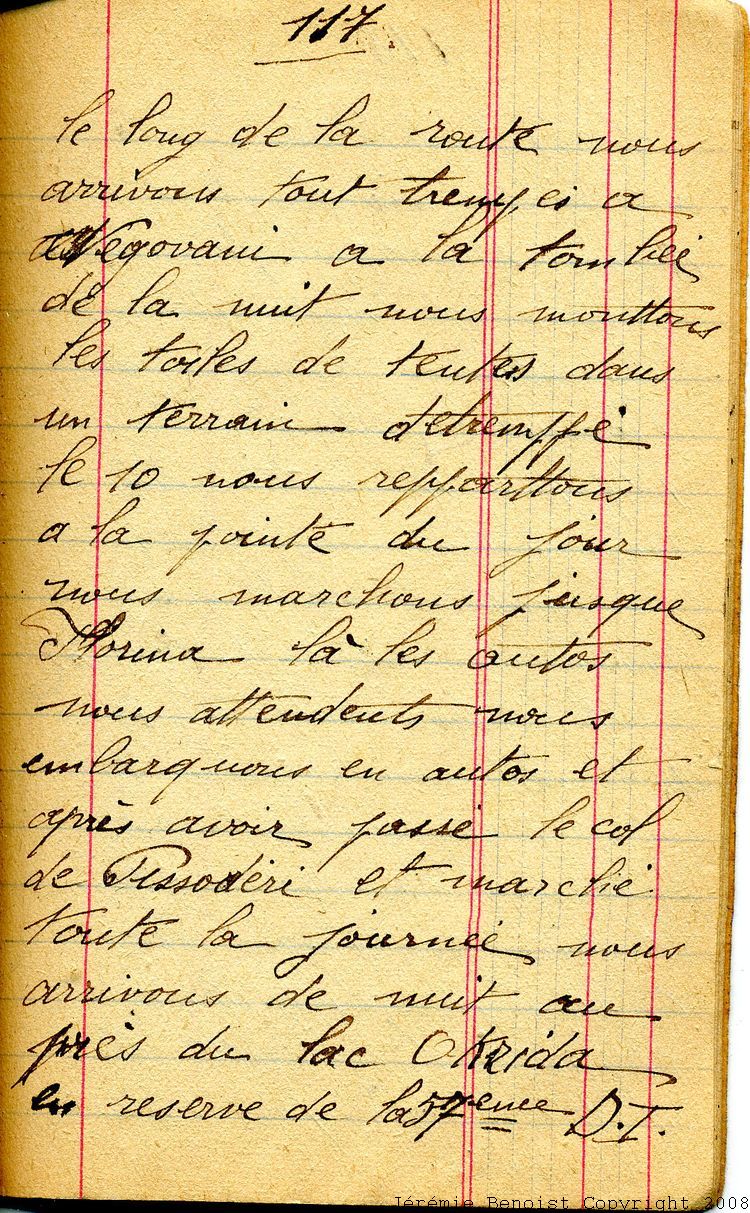 117
le long de la route nous
arrivons tout trempés a
Négovani a la tombée
de la nuit nous monttons
les toiles de tentes dans
un terrain detremppé
le 10 nous repparttons
a la pointe du jour
nous marchons jusque
Florina là les autos
nous attendents nous
embarquons en autos et
après avoir passé le col
de Pissodéri et marché
toute la journée nous
arrivons de nuit au
près du lac Okrida
en reserve de la 57eme D.I.
Jérémie Benoist Copyright 2008